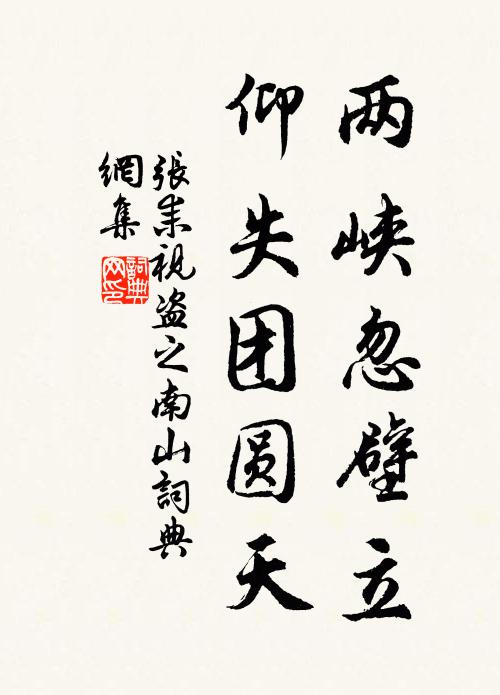 两峡忽壁立
仰失团圆天
張耒視盗之南山詞典
網集
詞典網印